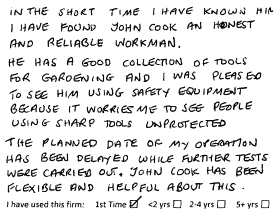 IN THE SHORT TIME I HAVE KNOWN HIM
I HAVE FOUND JOHN COOK AN HONEST
AND RELIABLE WORKMAN.
HE HAS A GOOD COLLECTION OF TOOLS
FOR GARDENING AND I WAS PLEASED
TO SEE HIM USING SAFETY EQUIPMENT
BECAUSE IT WORRIES ME TO SEE PEOPLE
USING SHARP TOOLS UNPROTECTED
THE PLANNED DATE OF MY OPERATION
HAS BEEN DELAYED WHILE FURTHER TESTS
WERE CARRIED OUT. JOHN COOK HAS BEEN
FLEXIBLE AND HELPFUL ABOUT THIS.
I have used this firm: 1st Time ☑ <2 yrs ☐ 2-4 yrs ☐ 5+ yrs ☐